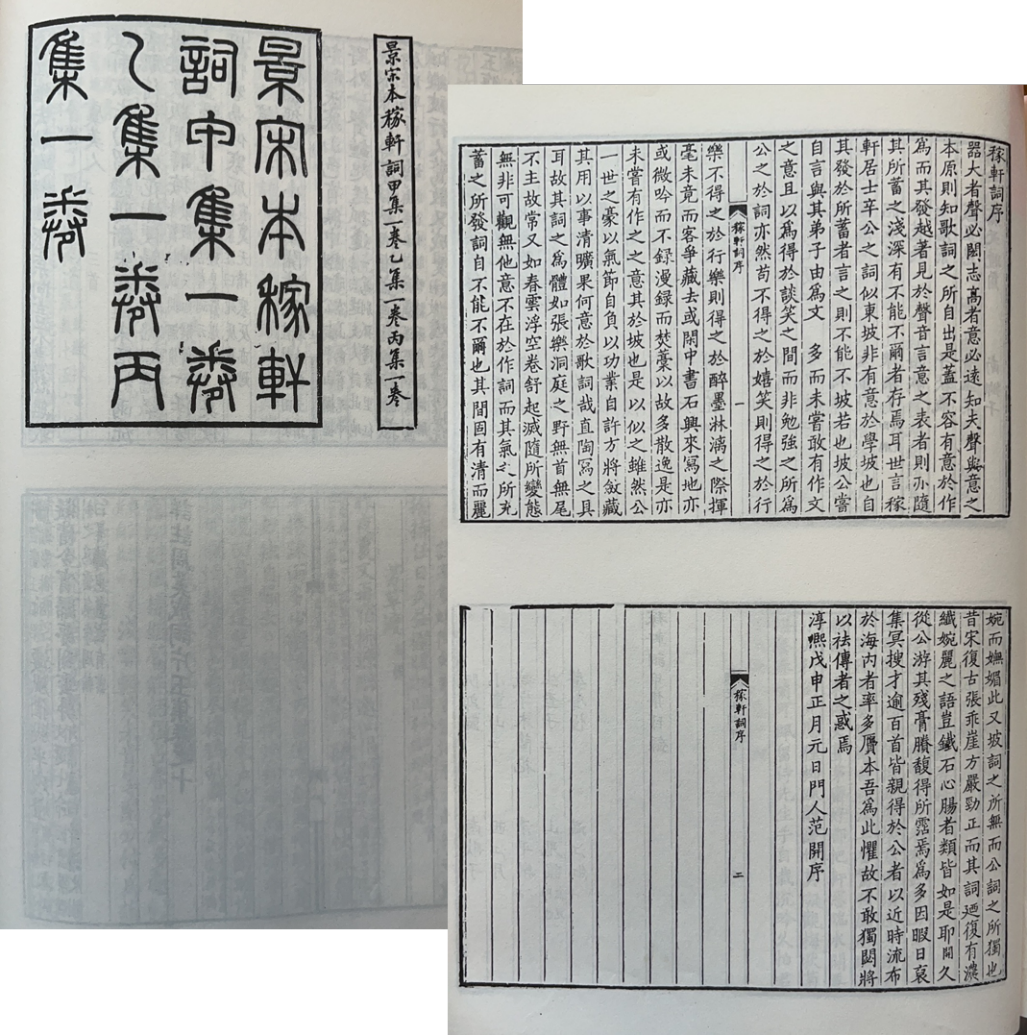 景宋本稼軒詞甲集一卷乙集一卷丙集一卷
景宋本稼軒
詞甲集一卷
乙集一卷丙
集一卷
稼軒詞序
器大者聲必閎志高者意必遠知夫聲與意之
本原則知歌詞之所自出是蓋不容有意於作
為而其發越著見於聲音言意之表者則亦隨
其所蓄之淺深有不能不爾者存焉耳世言稼
軒居士辛公之詞似東坡非有意於學坡也自
其發於所蓄者言之則不能不坡若也坡公嘗
自言與其弟子由為文 多而未嘗敢有作文
之意且以為得於談笑之間而非勉強之所為
公之於詞亦然苟不得之於嬉笑則得之於行
稼軒詞序 一
樂不得之於行樂則得之於醉墨淋漓之際揮
毫未竟而客爭藏去或閑中書石興來寫地亦
或微吟而不録漫録而焚藁以故多散逸是亦
未嘗有作之之意其於坡也是以似之雖然公
一世之豪以氣節自負以功業自許方將斂藏
其用以事清曠果何意於歌詞哉直陶寫之具
耳故其詞之為體如張樂洞庭之野無首無尾
不主故常又如春雲浮空卷舒起滅隨所變態
無非可觀無他意不在於作詞而其氣之所充
蓄之所發詞自不能不爾也其間固有清而麗
婉而嫵媚此又坡詞之所無而公詞之所獨也
昔宋復古張乖崖方嚴勁正而其詞廼復有濃
纖婉麗之語豈鐵石心腸者類皆如是耶開久
從公游其殘膏賸馥得所霑焉為多因暇日裒
集冥搜才逾百首皆親得於公者以近時流布
於海内者率多贗本吾為此懼故不敢獨閟將
以祛傳者之惑焉
淳熙戊申正月元日門人范開序
稼軒詞序 二